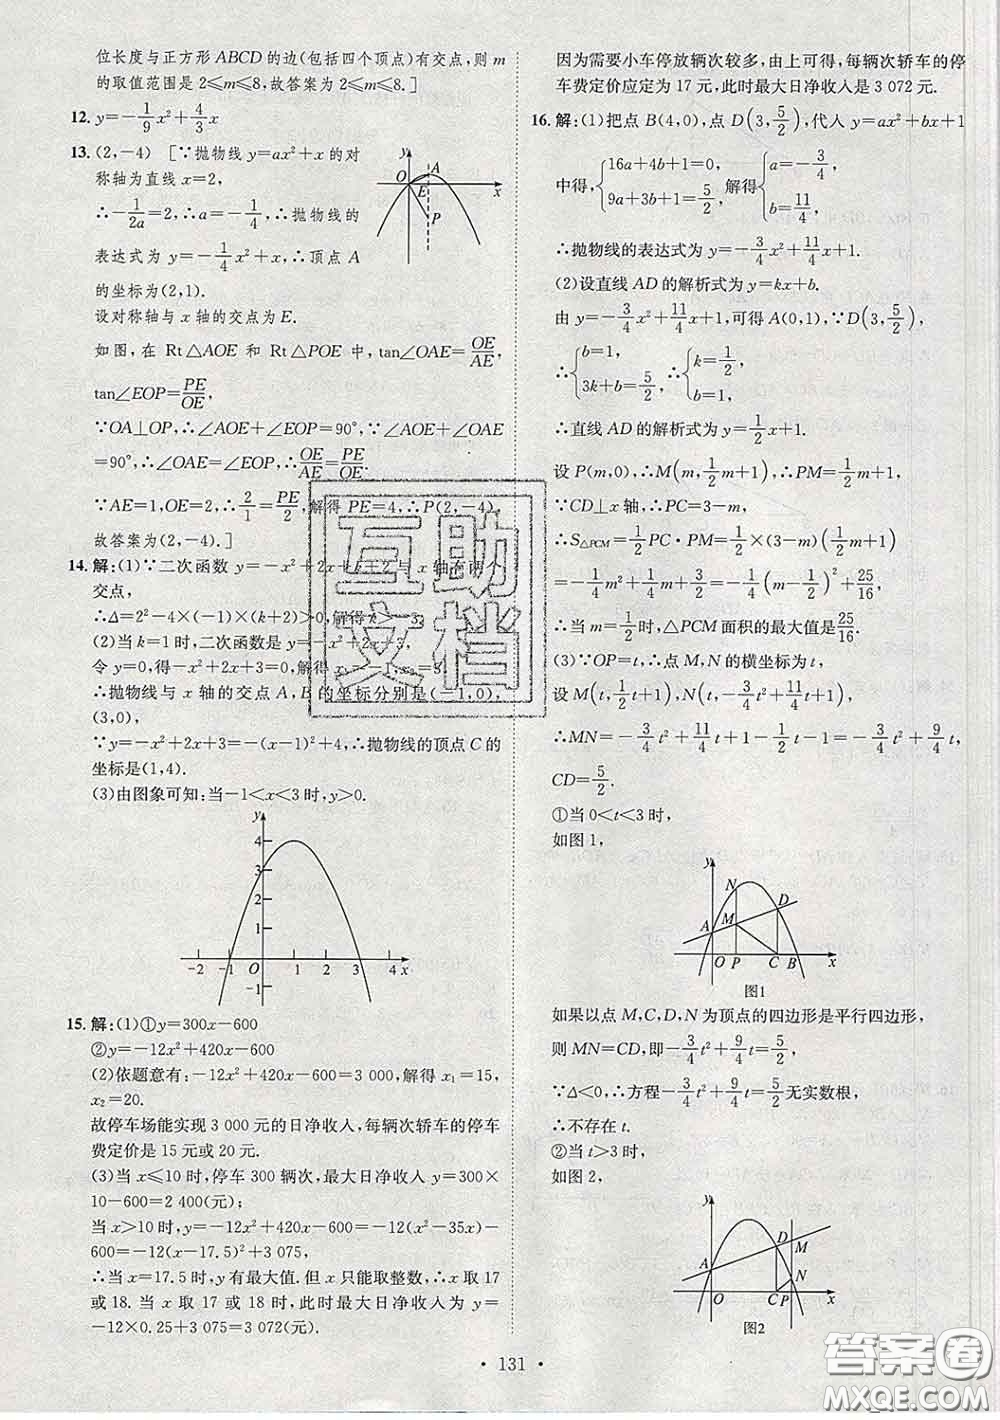 位长度与正方形ABCD的边(包括四个顶点)有交点,则m
的取值范围是2≤m≤8,故答案为2≤m≤8.]
12. y=-1/9x²+4/3x
13. (2,-4) [∵抛物线y=ax²+x的对
称轴为直线x=2,
∴-1/2a=2,∴a=-1/4,∴抛物线的
表达式为y=-1/4x²+x,∴顶点A
的坐标为(2,1).
设对称轴与x轴的交点为E.
如图,在Rt△AOE和Rt△POE中,tan∠OAE=OE/AE,
tan∠EOP=PE/OE,
∵OA⊥OP,∴∠AOE+∠EOP=90°,∵∠OAE+∠AOE
=90°,∴∠OAE=∠EOP,∴OE/AE=PE/OE.
∵AE=1,OE=2,∴2/1=PE/2,解得PE=4,∴P(2,-4),
故答案为(2,-4).]
y A O E x P
14. 解:(1)∵二次函数y=-x²+2x+k+2与x轴有两个
交点,
∴Δ=2²-4×(-1)×(k+2)>0,解得k>-3.
(2)当k=1时,二次函数是y=-x²+2x+3,
令y=0,得-x²+2x+3=0,解得x₁=-1,x₂=3,
∴抛物线与x轴的交点A,B的坐标分别是(-1,0),
(3,0),
∵y=-x²+2x+3=-(x-1)²+4,∴抛物线的顶点C的
坐标是(1,4).
(3)由图象可知:当-1<x<3时,y>0.
y
4
3
2
1
-2 -1 O 1 2 3 4 x
-1
15. 解:(1)①y=300x-600
②y=-12x²+420x-600
(2)依题意有:-12x²+420x-600=3 000,解得x₁=15,
x₂=20.
故停车场能实现3 000元的日净收入,每辆次轿车的停车
费定价是15元或20元.
(3)当x≤10时,停车300辆次,最大日净收入y=300×
10-600=2 400(元);
当x>10时,y=-12x²+420x-600=-12(x²-35x)-
600=-12(x-17.5)²+3 075,
∴当x=17.5时,y有最大值.但x只能取整数,∴x取17
或18.当x取17或18时,此时最大日净收入为y=
-12×0.25+3 075=3 072(元).
因为需要小车停放辆次较多,由上可得,每辆次轿车的停
车费定价应定为17元,此时最大日净收入是3 072元.
16. 解:(1)把点B(4,0),点D(3,5/2),代人y=ax²+bx+1
中得,{16a+4b+1=0, 9a+3b+1=5/2,解得{a=-3/4, b=11/4,
∴抛物线的表达式为y=-3/4x²+11/4x+1.
(2)设直线AD的解析式为y=kx+b.
由y=-3/4x²+11/4x+1,可得A(0,1),∵D(3,5/2),
∴{b=1, 3k+b=5/2, ∴{k=1/2, b=1,
∴直线AD的解析式为y=1/2x+1.
设P(m,0),∴M(m,1/2m+1),∴PM=1/2m+1,
∵CD⊥x轴,∴PC=3-m,
∴S△PCM=1/2PC·PM=1/2×(3-m)(1/2m+1)
=-1/4m²+1/4m+3/2=-1/4(m-1/2)²+25/16,
∴当m=1/2时,△PCM面积的最大值是25/16.
(3)∵OP=t,∴点M,N的横坐标为t,
设M(t,1/2t+1),N(t,-3/4t²+11/4t+1),
∴MN=-3/4t²+11/4t+1-1/2t-1=-3/4t²+9/4t,
CD=5/2.
①当0<t<3时,
如图1,
y N D M A O P C B x
图1
如果以点M,C,D,N为顶点的四边形是平行四边形,
则MN=CD,即-3/4t²+9/4t=5/2,
∵Δ<0,∴方程-3/4t²+9/4t=5/2无实数根,
∴不存在t.
②当t>3时,
如图2,
y D M A N O C P x
图2
• 131 •
互助
文档
答案圈
MXQE.COM